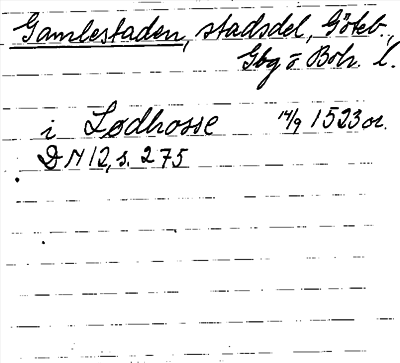 Gamlestaden, stadsdel, Göteb.,
Gbg o Boh. l.
i Lødhosse 14/9 1523 or.
DN 12, s. 275